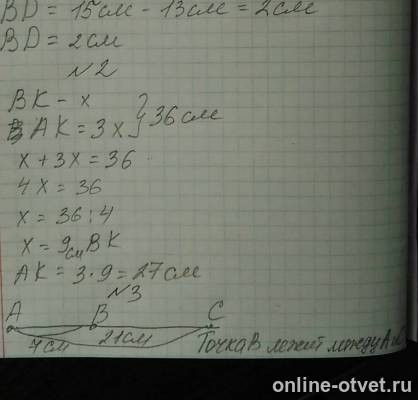 BD = 15см - 13см = 2см
BD = 2см
№2
BK - x
AK = 3x } 36см
x + 3x = 36
4x = 36
x = 36 : 4
x = 9см BK
AK = 3 · 9 = 27см
№3
A B C
7см 21см Точка B лежит между A и C
online-otvet.ru